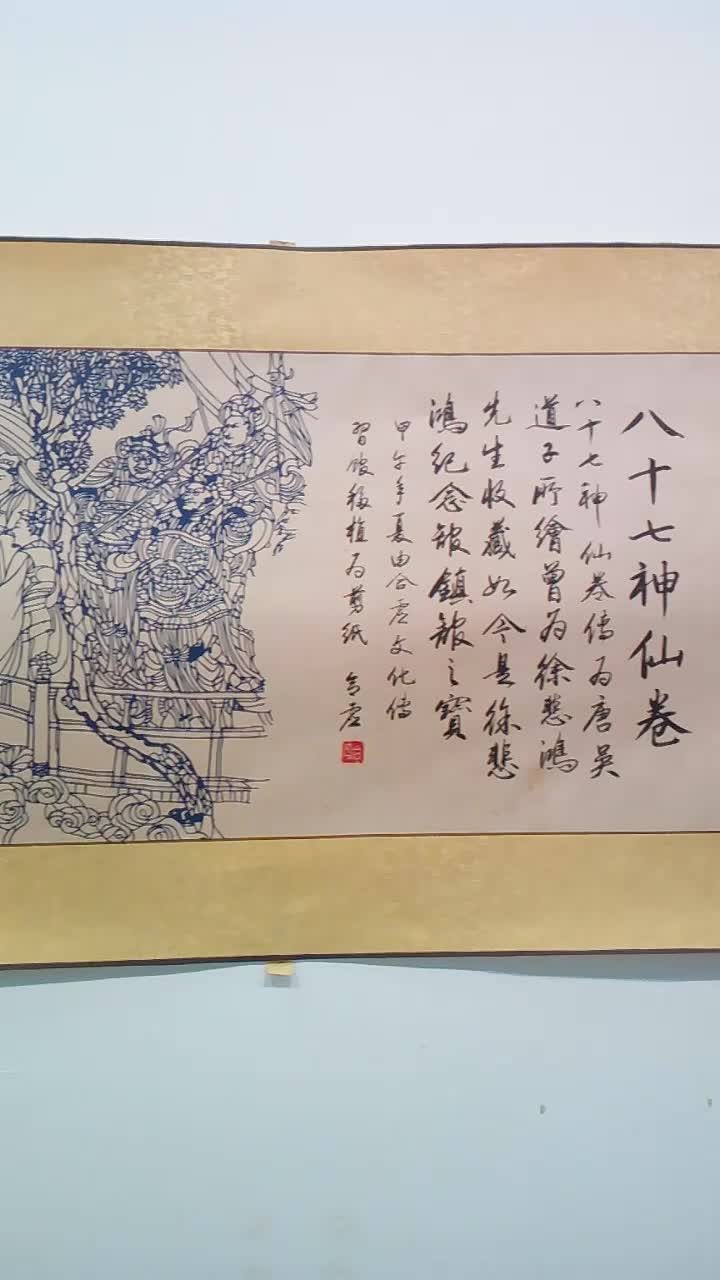 八十七神仙卷
八十七神仙卷传为唐吴
道子所繪曾为徐悲鴻
先生收藏如今是徐悲
鴻纪念馆鎮馆之寶
甲午年夏由合虚文化传
習馆移植为剪纸 合虚